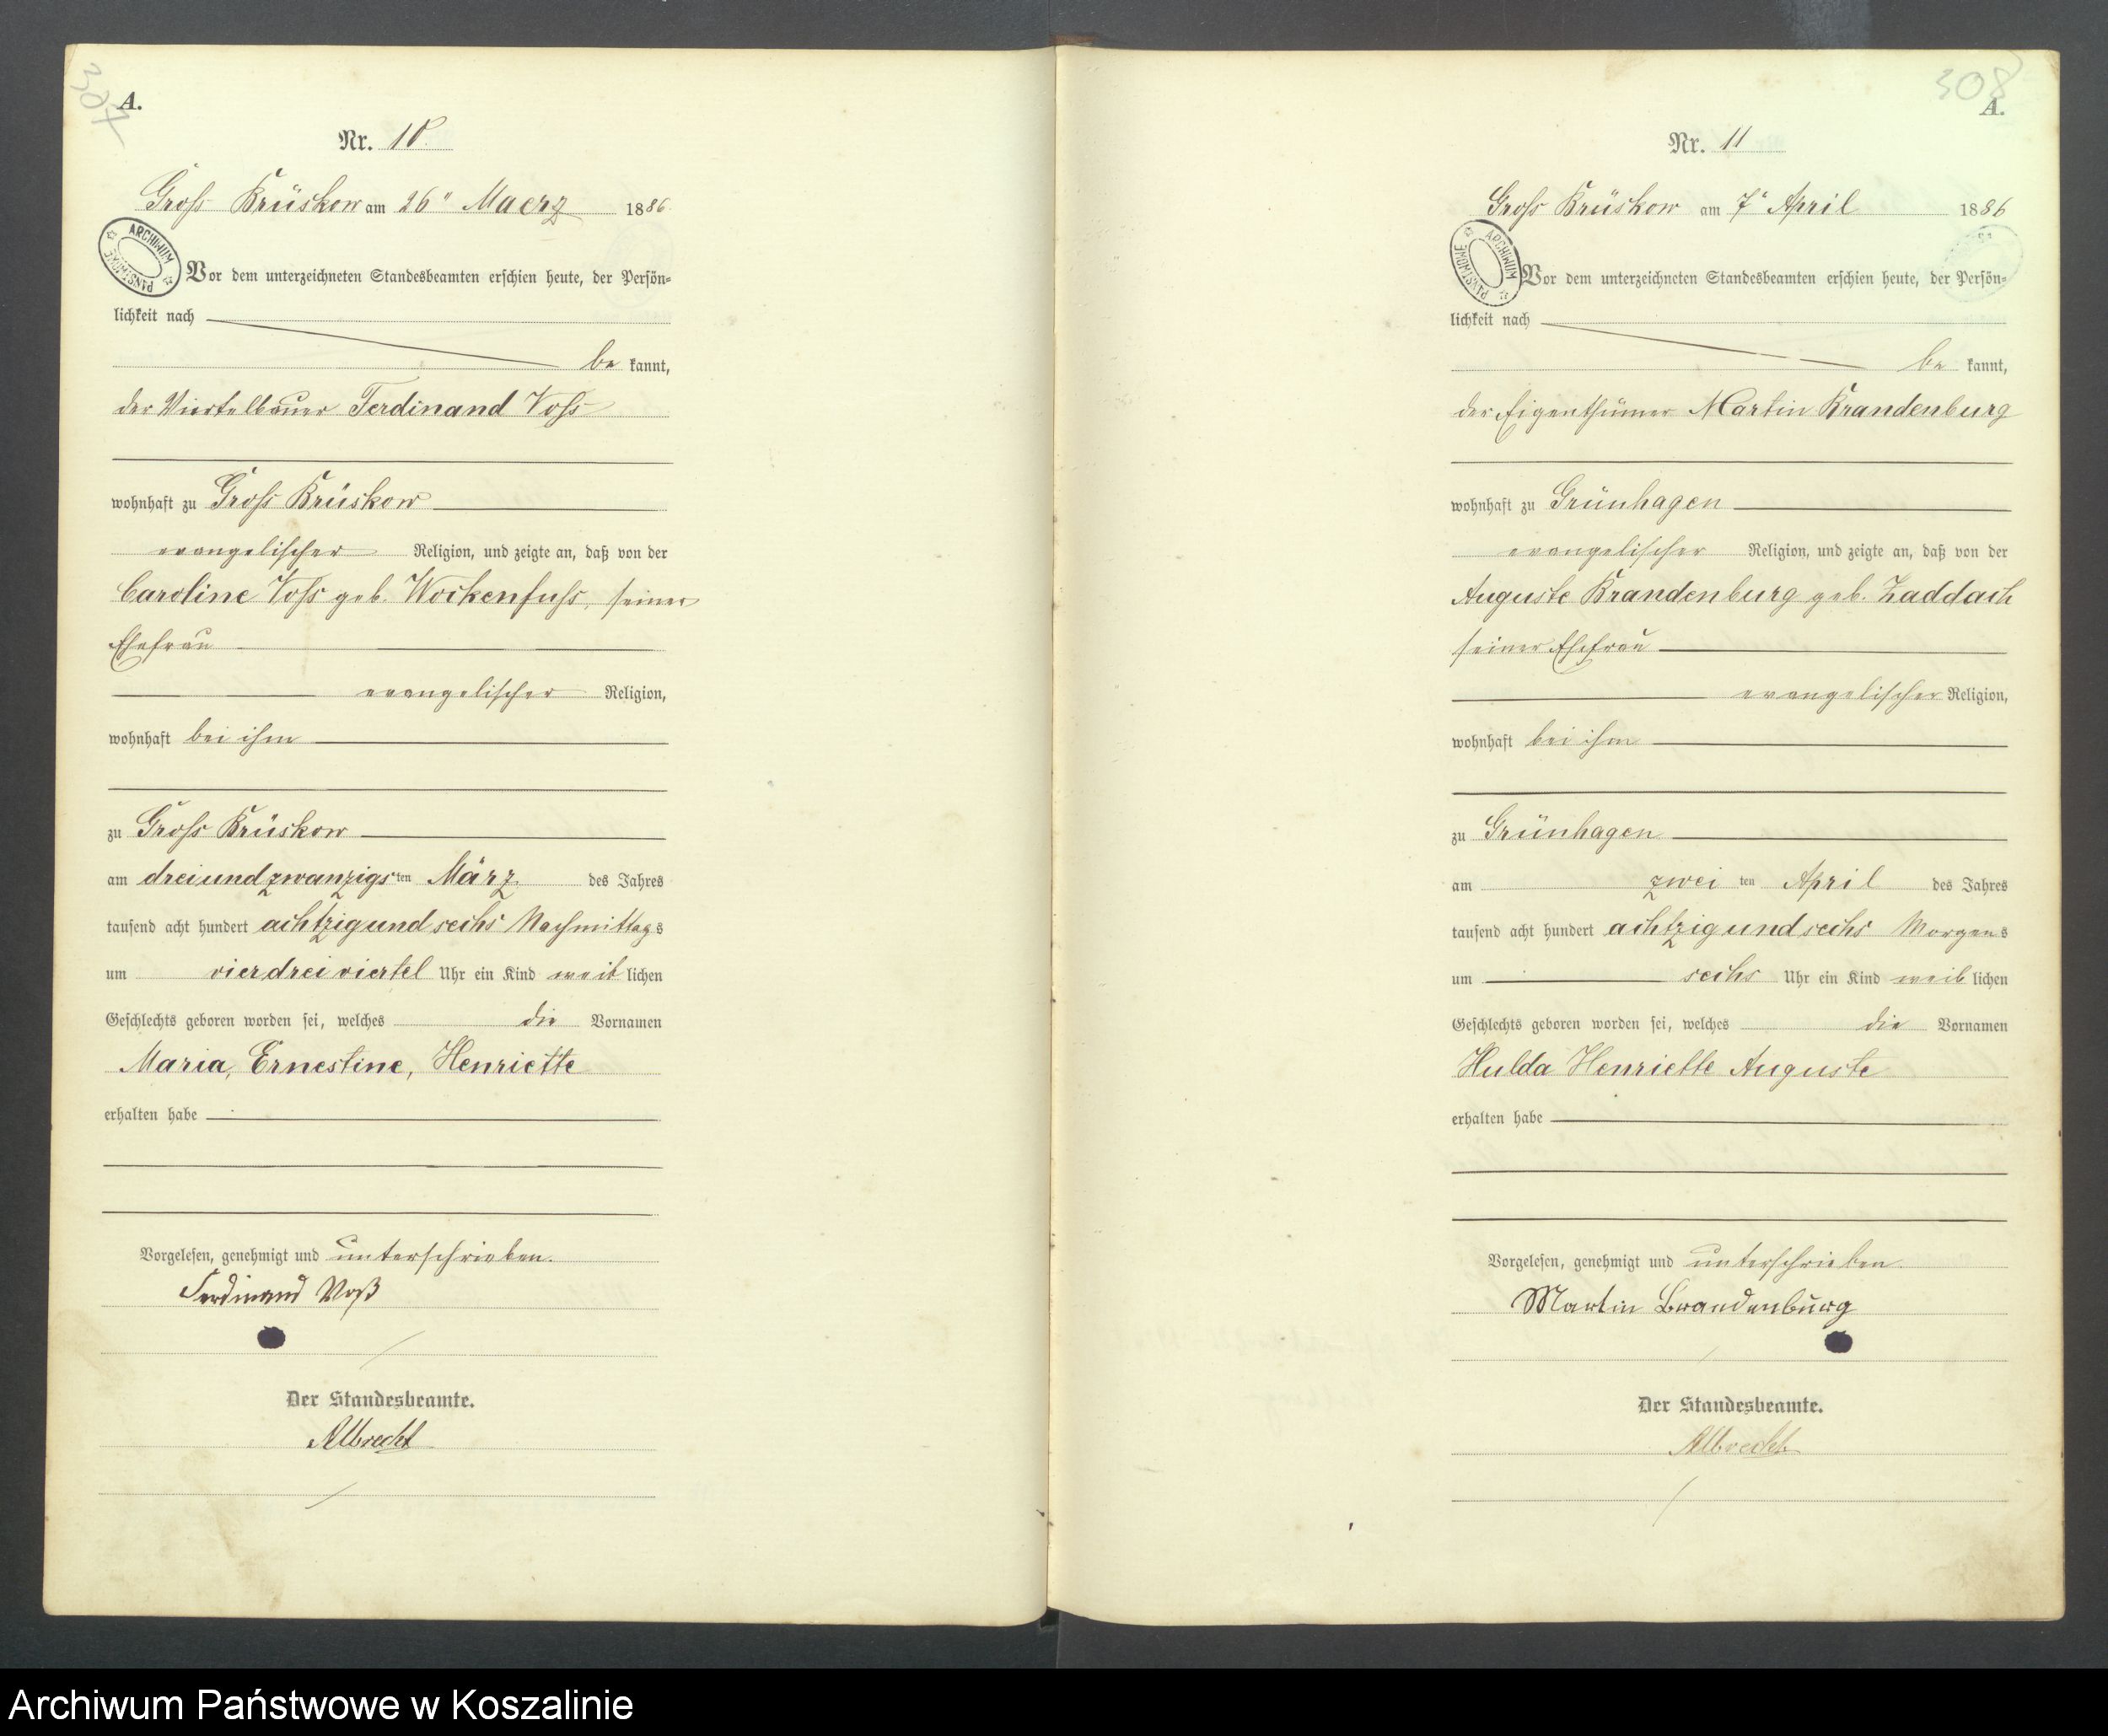 307
A.
Nr. 10.
Gross Krüskow am 26" Maerz 1886
ARCHIWUM PAŃSTWOWE
Vor dem unterzeichneten Standesbeamten erschien heute, der Persön=
lichkeit nach
be kannt,
der Viertelbauer Ferdinand Voss
wohnhaft zu Gross Krüskow
evangelischer Religion, und zeigte an, daß von der
Caroline Voss geb. Wockenfuss, seiner
Ehefrau
evangelischer Religion,
wohnhaft bei ihm
zu Gross Krüskow
am dreiundzwanzigsten März des Jahres
tausend acht hundert achtzigundsechs Nachmittags
um vierdreiviertel Uhr ein Kind weiblichen
Geschlechts geboren worden sei, welches die Vornamen
Maria, Ernestine, Henriette
erhalten habe
Vorgelesen, genehmigt und unterschrieben.
Ferdinand Voß
Der Standesbeamte.
Albrecht
308
A.
Nr. 11
Gross Krüskow am 7" April 1886
ARCHIWUM PAŃSTWOWE
Vor dem unterzeichneten Standesbeamten erschien heute, der Persön=
lichkeit nach
be kannt,
der Eigenthümer Martin Brandenburg
wohnhaft zu Grünhagen
evangelischer Religion, und zeigte an, daß von der
Auguste Brandenburg geb. Zaddach
seiner Ehefrau
evangelischer Religion,
wohnhaft bei ihm
zu Grünhagen
am zwei ten April des Jahres
tausend acht hundert achtzigundsechs Morgens
um sechs Uhr ein Kind weiblichen
Geschlechts geboren worden sei, welches die Vornamen
Hulda Henriette Auguste
erhalten habe
Vorgelesen, genehmigt und unterschrieben.
Martin Brandenburg
Der Standesbeamte.
Albrecht
Archiwum Państwowe w Koszalinie